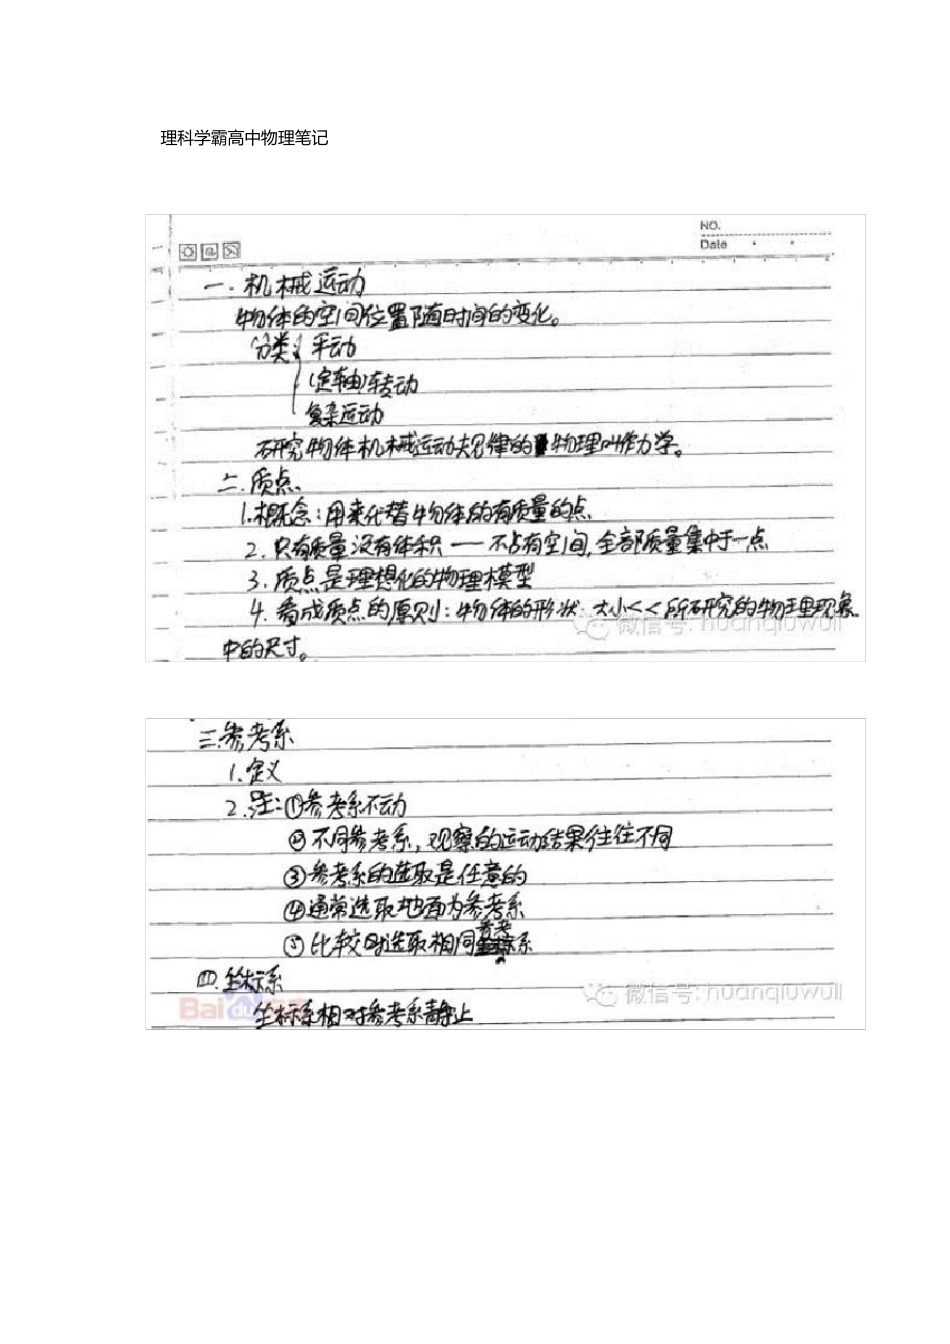 理科学霸高中物理笔记
NO.
Date
一.机械运动
物体的空间位置随时间的变化。
分类{平动
(定轴)转动
复杂运动
研究物体机械运动规律的物理叫作力学。
二.质点
1.概念:用来代替物体的有质量的点
2.只有质量没有体积——不占有空间,全部质量集中于一点
3.质点是理想化的物理模型
4.看成质点的原则:物体的形状 大小<<所研究的物理现象
中的尺寸。
微信号: huanqiuwuli
三.参考系
1.定义
2.注:①参考系不动
②不同参考系,观察的运动结果往往不同
③参考系的选取是任意的
④通常选取地面为参考系
⑤比较时选取相同参考系
四.坐标系
坐标系相对参考系静止
微信号: huanqiuwuli
Bai